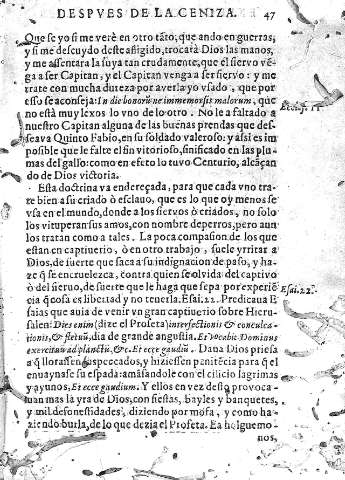 DESPVES DE LA CENIZA. 47
Que se yo si me verè en otro tãto, que ando en guerras,
y si me descuydo deste afligido, trocarà Dios las manos,
y me assentara la suya tan crudamente, que el siervo vẽ-
ga a ser Capitan, y el Capitan venga a ser siervo: y me
trate con mucha dureza por averla yo vsado, que por
esso se aconseja: In die bonorũ ne immemor sis malorum, que
no està muy lexos lo vno de lo otro. No le a faltado a
nuestro Capitan alguna de las buenas prendas que des-
seava Quinto Fabio, en su soldado valeroso: y assi es im
possible que le falte el fin vitorioso, sinificado en las plu
mas del gallo: como en efeto lo tuvo Centurio, alcãçan
do de Dios victoria.
Esta doctrina va endereçada, para que cada vno tra-
te bien a su criado ò esclauo, que es lo que oy menos se
vsa en el mundo, donde a los siervos ò criados, no solo
los vituperan sus amos, con nombre de perros, pero aun
los tratan como a tales. La poca compasion de los que
estan en captiuerio, ò en otro trabajo, suele yrritar a
Dios, de suerte que saca a su indignacion de paso, y ha-
ze q̃ se encruelezca, contra quien se olvida del captivo
ò del sieruo, de suerte que le haga que sepa por experiẽ
cia q̃ cosa es libertad y no tenerla. Esai. 22. Predicaua E
saias que auia de venir vn gran captiuerio sobre Hieru-
salen: Dies enim (dize el Profeta) interfectionis & conculca-
tionis, & fletuũ, dia de grande angustia. Et vocabit Dominus
exercituũ ad planctũ, &c. Et ecce gaudiũ. Daua Dios priesa
a q̃ llorassen sus peccados, y hiziessen penitẽcia para q̃ el
enuaynase su espada: amãsandole con el cilicio lagrimas
y ayunos, Et ecce gaudium. Y ellos en vez desto provoca-
uan mas la yra de Dios, con fiestas, bayles y banquetes,
y mil desonessidades, diziendo por mofa, y como ha-
ziendo burla, de lo que dezia el Profeta. Ea holguemo-
nos,
Esai. 22.